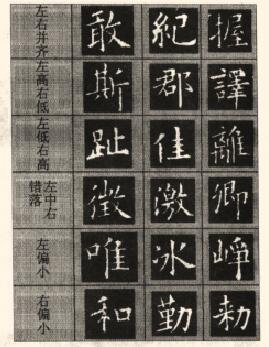 左右并齐 敢 紀 握
左高右低 斯 郡 譯
左低右高 趾 佳 離
左中右错落 徵 激 卿
左偏小 唯 冰 崢
右偏小 和 勤 勅